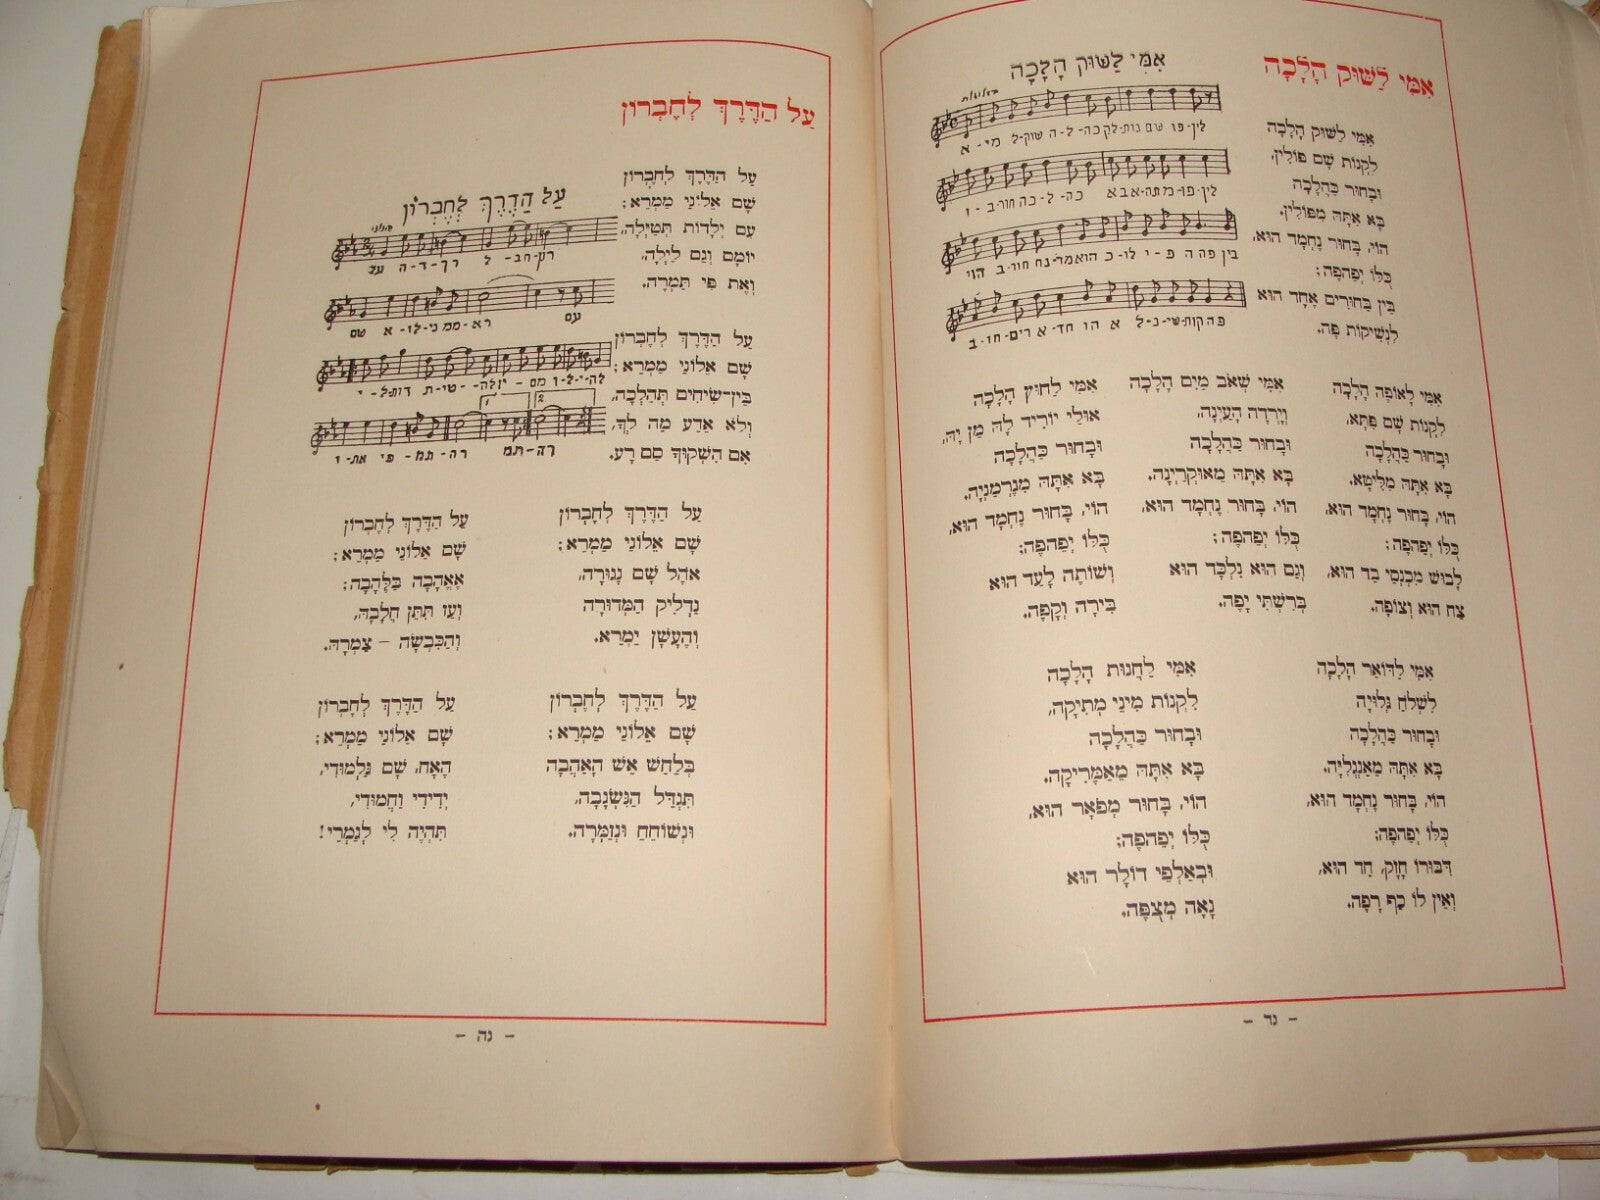 אִמִּי לַשּׁוּק הָלְכָה
אִמִּי לַשּׁוּק הָלְכָה
אִמִּי לַשּׁוּק הָלְכָה
לִקְנוֹת שָׁם פּוֹלִין,
וּבָחוּר כַּהֲלָכָה
בָּא אִתָּהּ מִפּוֹלִין.
הוֹי, בָּחוּר נֶחְמָד הוּא,
כֻּלּוֹ יְפֵהפֶה;
בֵּין בַּחוּרִים אֶחָד הוּא
לִנְשִׁיקוֹת פֶּה.
אִמִּי לָאוֹפֶה הָלְכָה
לִקְנוֹת שָׁם פִּתָּא,
וּבָחוּר כַּהֲלָכָה
בָּא אִתָּהּ מִלִּיטָא.
הוֹי, בָּחוּר נֶחְמָד הוּא,
כֻּלּוֹ יְפֵהפֶה;
לָבוּשׁ מִכְנְסֵי בַד הוּא,
צַח הוּא וְצוֹפֶה.
אִמִּי שְׁאֹב מַיִם הָלְכָה
וָיְרְדָה הָעַיְנָה,
וּבָחוּר כַּהֲלָכָה
בָּא אִתָּהּ מֵאוּקְרַיְנָה.
הוֹי, בָּחוּר נֶחְמָד הוּא,
כֻּלּוֹ יְפֵהפֶה;
וְגַם הוּא נִלְכַּד הוּא
בְּרִשְׁתִּי יָפֶה.
אִמִּי לַחוּץ הָלְכָה
אוּלַי יוֹרִיד לָהּ מַן יָהּ,
וּבָחוּר כַּהֲלָכָה
בָּא אִתָּהּ מִגֶּרְמַנְיָה.
הוֹי, בָּחוּר נֶחְמָד הוּא,
כֻּלּוֹ יְפֵהפֶה;
וְשׁוֹתֶה לָעַד הוּא
בִּירָה וְקָפֶה.
אִמִּי לַדֹּאַר הָלְכָה
לִשְׁלֹחַ גְּלוּיָה
וּבָחוּר כַּהֲלָכָה
בָּא אִתָּהּ מֵאַנְגְּלִיָּה.
הוֹי, בָּחוּר נֶחְמָד הוּא,
כֻּלּוֹ יְפֵהפֶה;
דִּבּוּרוֹ חָזָק, חַד הוּא,
וְאֵין לוֹ כַף רָפָה.
אִמִּי לַחֲנוּת הָלְכָה
לִקְנוֹת מִינֵי מְתִיקָה,
וּבָחוּר כַּהֲלָכָה
בָּא אִתָּהּ מֵאֲמֶרִיקָה.
הוֹי, בָּחוּר מְפֹאָר הוּא,
כֻּלּוֹ יְפֵהפֶה;
וּבְאַלְפֵי דוֹלָר הוּא
נָאֶה מְצֻפֶּה.
– נד –
עַל הַדֶּרֶךְ לְחֶבְרוֹן
עַל הַדֶּרֶךְ לְחֶבְרוֹן
עַל הַדֶּרֶךְ לְחֶבְרוֹן
שָׁם אֵלוֹנֵי מַמְרֵא;
עִם יְלָדוֹת תְּטַיְּלָה,
יוֹמָם וְגַם לַיְלָה,
וְאֶת פִּי תַּמְרֶה.
עַל הַדֶּרֶךְ לְחֶבְרוֹן
שָׁם אֵלוֹנֵי מַמְרֵא;
בֵּין־שִׂיחִים תְּהַלְּכָה,
וְלֹא אֵדַע מַה לְךָ,
אִם הִשְׁקוּךָ סַם רָע.
עַל הַדֶּרֶךְ לְחֶבְרוֹן
שָׁם אֵלוֹנֵי מַמְרֵא;
אֹהֶל שָׁם נָגוּרָה,
נַדְלִיק הַמְּדוּרָה
וְהֶעָשָׁן יַמְרֵא.
עַל הַדֶּרֶךְ לְחֶבְרוֹן
שָׁם אֵלוֹנֵי מַמְרֵא;
בְּלַחַשׁ אֵשׁ הָאַהֲבָה
תִּגְדַּל הַנִּשְׂגָּבָה,
וּנְשׂוֹחֵחַ וּנְזַמְּרָה.
עַל הַדֶּרֶךְ לְחֶבְרוֹן
שָׁם אֵלוֹנֵי מַמְרֵא;
אֹאֲהָבָה בַּלֶּהָבָה;
וְעֵז תִּתֵּן חֲלָבָהּ,
וְהַכִּבְשָׂה – צַמְרָהּ.
עַל הַדֶּרֶךְ לְחֶבְרוֹן
שָׁם אֵלוֹנֵי מַמְרֵא;
הֶאָח, שָׁם גַּלְמוּדִי,
יְדִידִי וַחֲמוּדִי,
תִּהְיֶה לִי לְגַמְרֵי!
– נה –